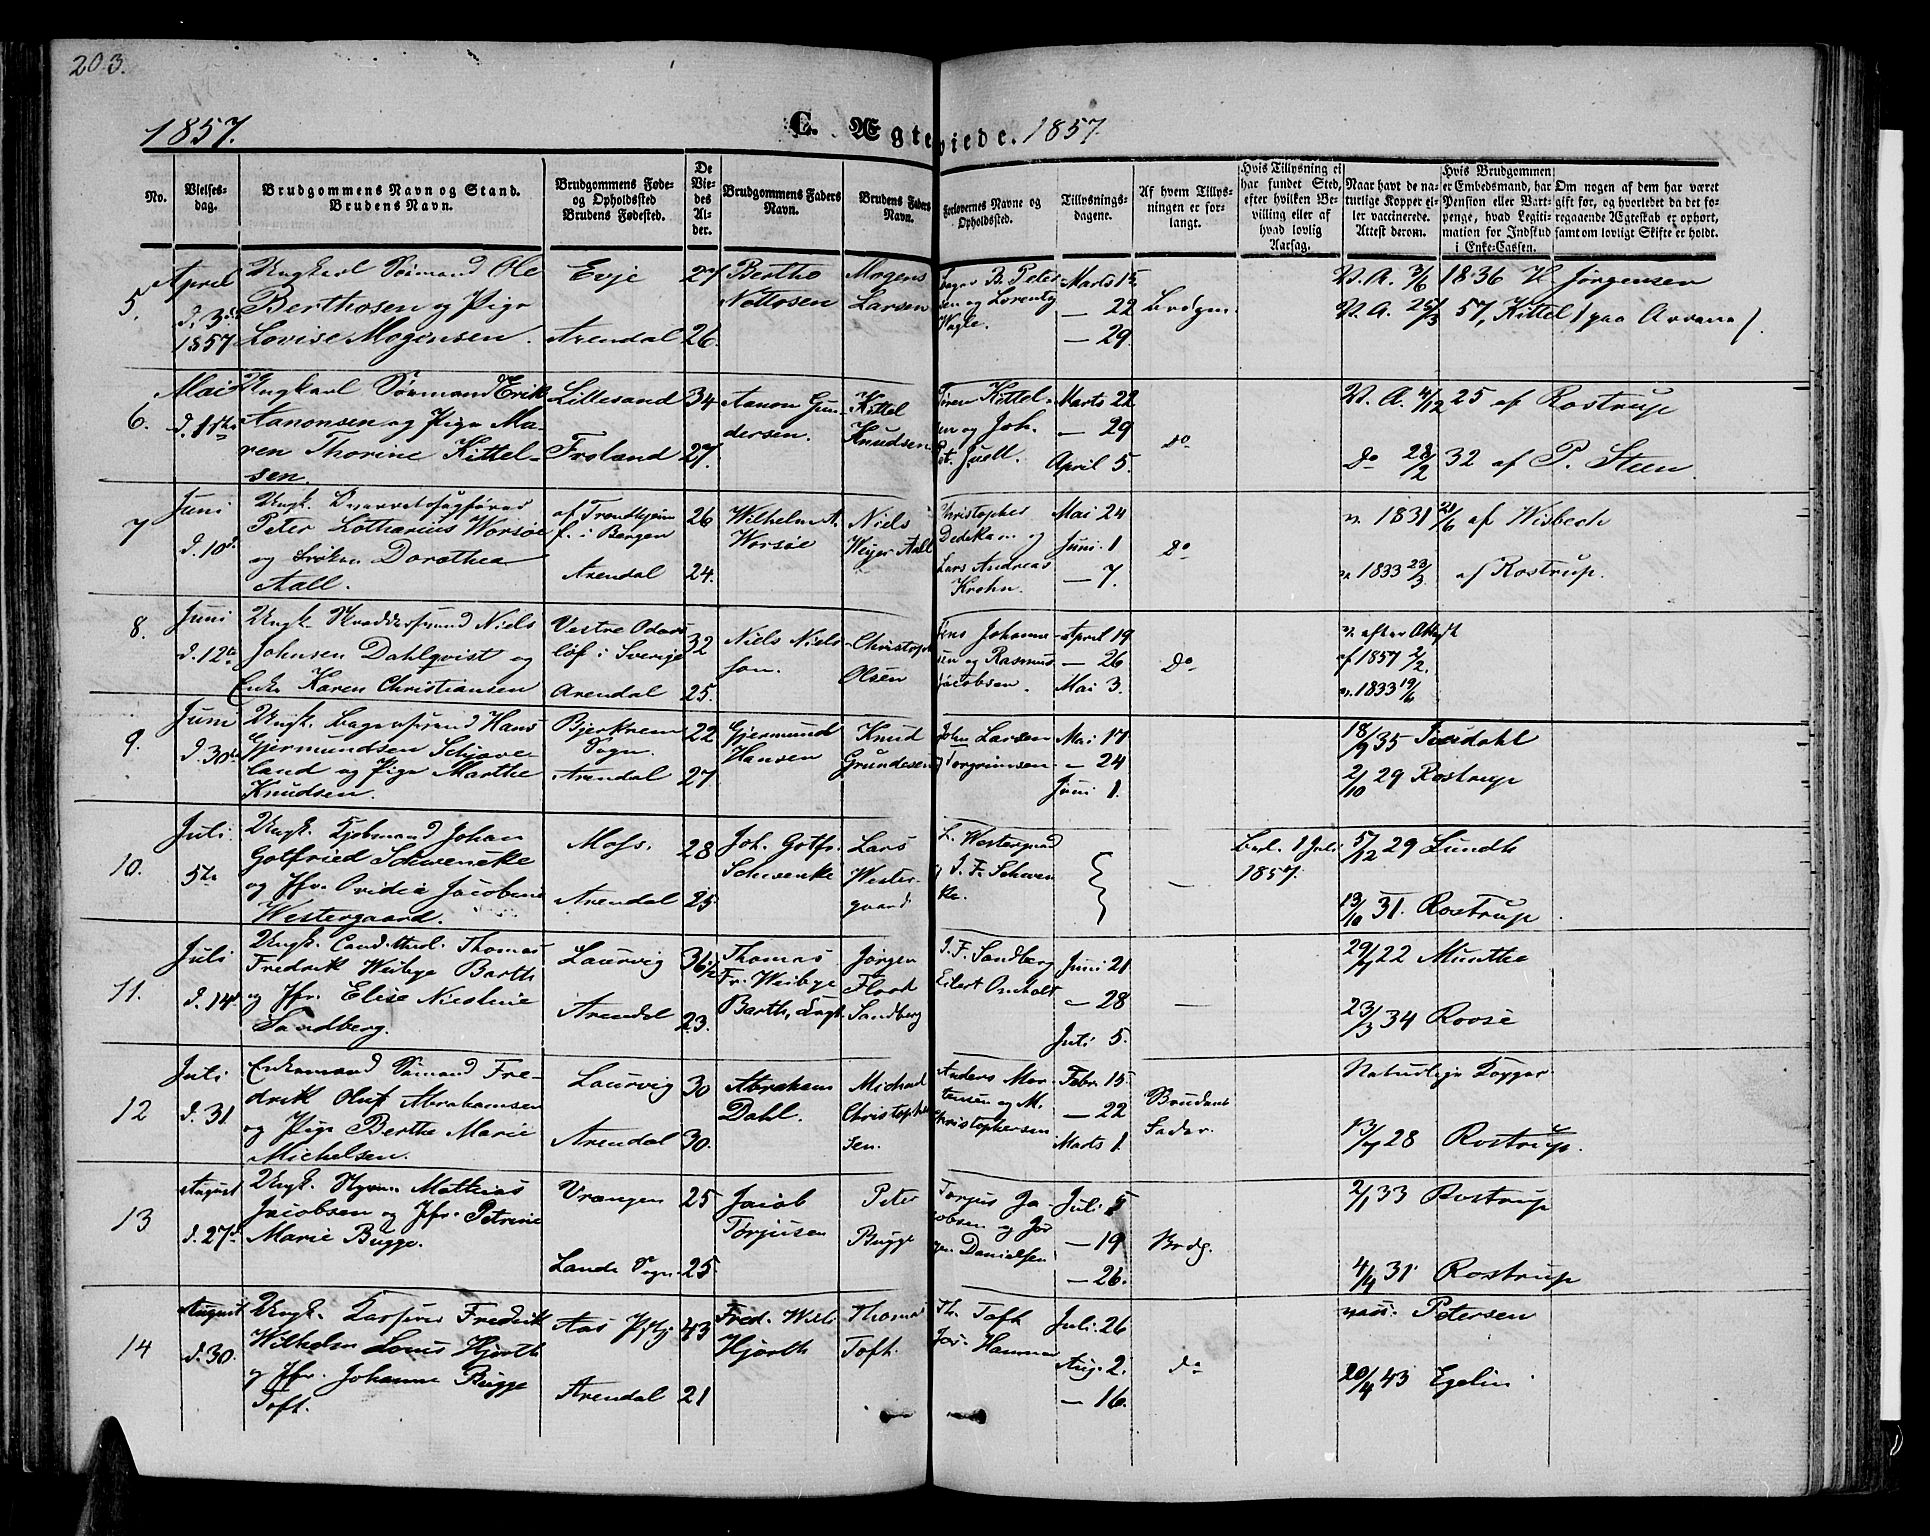 203.
1857.
C. Ægteviede. 1857
No.
Vielses-
dag.
Brudgommens Navn og Stand.
Brudens Navn.
Brudgommens Føde-
og Opholdssted
Brudens Fødested.
De
Vie-
des
Al-
der.
Brudgommens Faders
Navn.
Brudens Faders
Navn.
Forlovernes Navne og
Opholdssted.
Tillysnings-
dagene.
Af hvem Tillys-
ningen er for-
langt.
Hvis Tillysning ei
har fundet Sted,
efter hvilken Be-
villing eller af
hvad lovlig
Aarsag.
Naar havt de na-
turlige Kopper el-
ler vaccinerede.
Attest derom.
Hvis Brudgommen
er Embedsmand, har
Pension eller Vart-
penge, hvad Legiti-
mation for Indskud
i Enke-Cassen.
Om nogen af dem har været
gift før, og hvorledet da det fo-
regaaende Ægteskab er ophørt,
samt om lovligt Skifte er holdt.
5.
April
d. 3d
1857
Ungkarl Sømand Ole
Berthosen og Pige
Lovise Mogensen.
Evje
Arendal
27
26
Bertho
Nottosen
Mogens
Larsen
B. Peter
sen og Lorentz
Vagle.
Marts 15
— 22
— 29
Brdgm.
V. A. 3/6 1836 Jørgensen
V. A. 25/3 57, Kittel
6.
Mai
d. 11te
Ungkarl Sømand Erik
Aanonsen og Pige Ma-
ren Thorine Kittel-
sen.
Lillesand
Froland
34
27.
Aanon Gun
dersen.
Kittel
Knudsen
Søren Kittel-
sen og Joh.
Juell.
Marts 22
— 29
April 5.
Do
V. A. 4/12 25 af Rostrup
Do 28/2 32 af P. Steen
7
Juni
d. 10d
Ungk.
Peter Lotharius Worsøe
og Frøken Dorothea
Aall.
af Trondhjem
f. i Bergen
Arendal
26
24.
Wilhelm A.
Worsøe
Niels
Aall
Christopher
Dedekam og
Lars Andreas
Krohn.
Mai 24
Juni 1
— 7.
Do
v. 1831 21/6 af Wisbech
v. 1833 23/3 af Rostrup.
8.
Juni
d. 12te
Ungk. Niels
Johnsen Dahlqvist og
Enke Karen Christiansen
Vestre
løf i Sverige
Arendal
32
25.
Niels Niels
son.
Christoph
Olsen
Jens Johanne-
sen og Rasmus
Jacobsen.
April 19
— 26
Mai 3.
Do
v. efter Attest
af 1857 2/2.
v. 1833 19/6
9.
Juni
d. 30te
Ungk. Hans
Gjermundsen
land og Pige Marthe
Knudsen.
Bjerkrem
Sogn.
Arendal
22
27
Gjermund
Hansen
Knud
Grundesen
John Larsen
Torgrimsen
Mai 17
— 24
Juni 1.
18/9 35
2/10 29 Rostrup
10.
Juli
5te
Ungk. Kjøbmand Johan
Gotfried Schwencke
og Jfr. Ovidia Jacobine
Westergaard.
Moss.
Arendal
28
25
Joh. Gotfr.
Schwenke
Lars
Wester-
gaard
L. Westergaard
J. F. Schwen
ke.
—
Bevl. 1 Juli
1857.
5/12 29 Lundh
13/10 31. Rostrup.
11.
Juli
d. 14d
Ungk. Cand. theol. Thomas
Fredrik Weibye Barth
og Jfr. Elise Nicoline
Sandberg.
Laurvig
Arendal
36 1/2
23.
Thomas
Fr. Weibye
Barth,
Jørgen
Flood
Sandberg
J. F. Sandberg
Eilert Omholt
Juni 21
— 28
Juli 5.
—
29/9 22 Munthe
23/3 34 Roose
12
Juli
d. 31
Enkemand Sømand Fre-
drik Oluf Abrahamsen
og Pige Berthe Marie
Michelsen.
Laurvig
Arendal
30
30.
Abraham
Dahl.
Michael
Christopher
sen.
Anders Mor-
tensen og M.
Christophersen
Febr. 15
— 22
Marts 1.
Brudens
Fader.
Naturlige Kopper
13/9 28 Rostrup.
13
August
d. 27d
Ungk. Mathias
Jacobsen og Jfr. Petrine
Marie Bugge.
Vrangen
Lande Sogn
25
25.
Jacob
Torjusen
Peter
Bugge
Torjus Ja-
cobsen og Jør
gen Danielsen
Juli 5
— 19
— 26.
Brdg.
2/1 33 Rostrup
4/4 31 Rostrup
14
August
d. 30.
Ungk. Fredrik
Wilhelm Louis Hjorth
og Jfr. Johanne Bugge
Toft.
Aas
Arendal
43
21
Fred. Wilh.
Hjorth
Thomas
Toft.
Th. Toft
Hammer
Juli 26
Aug. 2.
— 16.
do
vacc. Petersen
20/4 43 Egelin